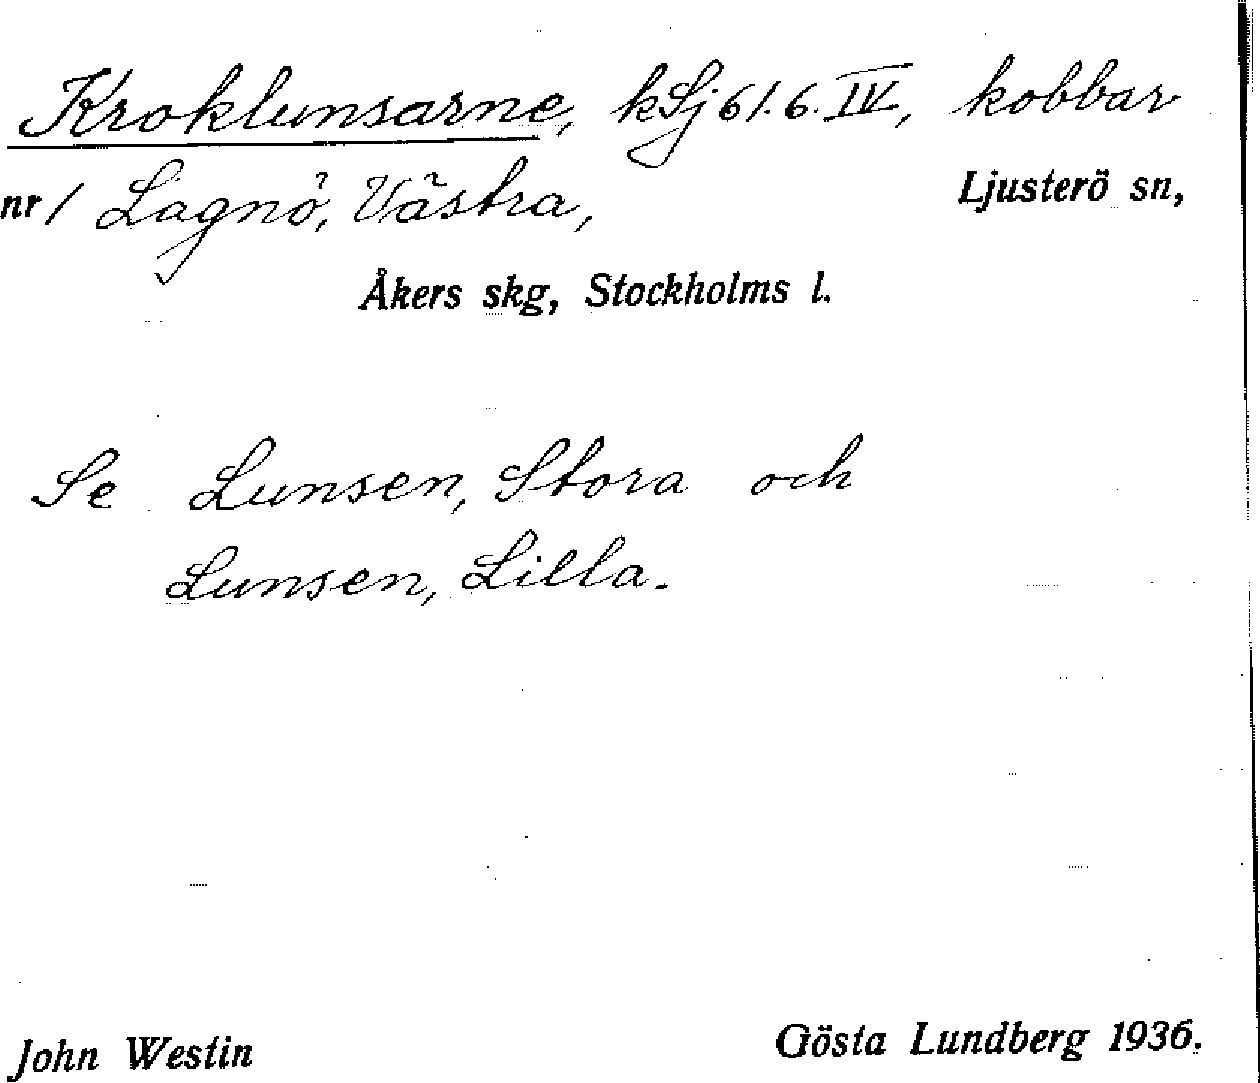 Kroklunsarne, kSj 61.6.IV, kobbar
nr 1 Lagnö, Västra, Ljusterö sn,
Åkers skg, Stockholms l.
Se Lunsen, Stora och
Lunsen, Lilla.
John Westin Gösta Lundberg 1936.